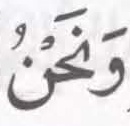 وَنَحْنُ